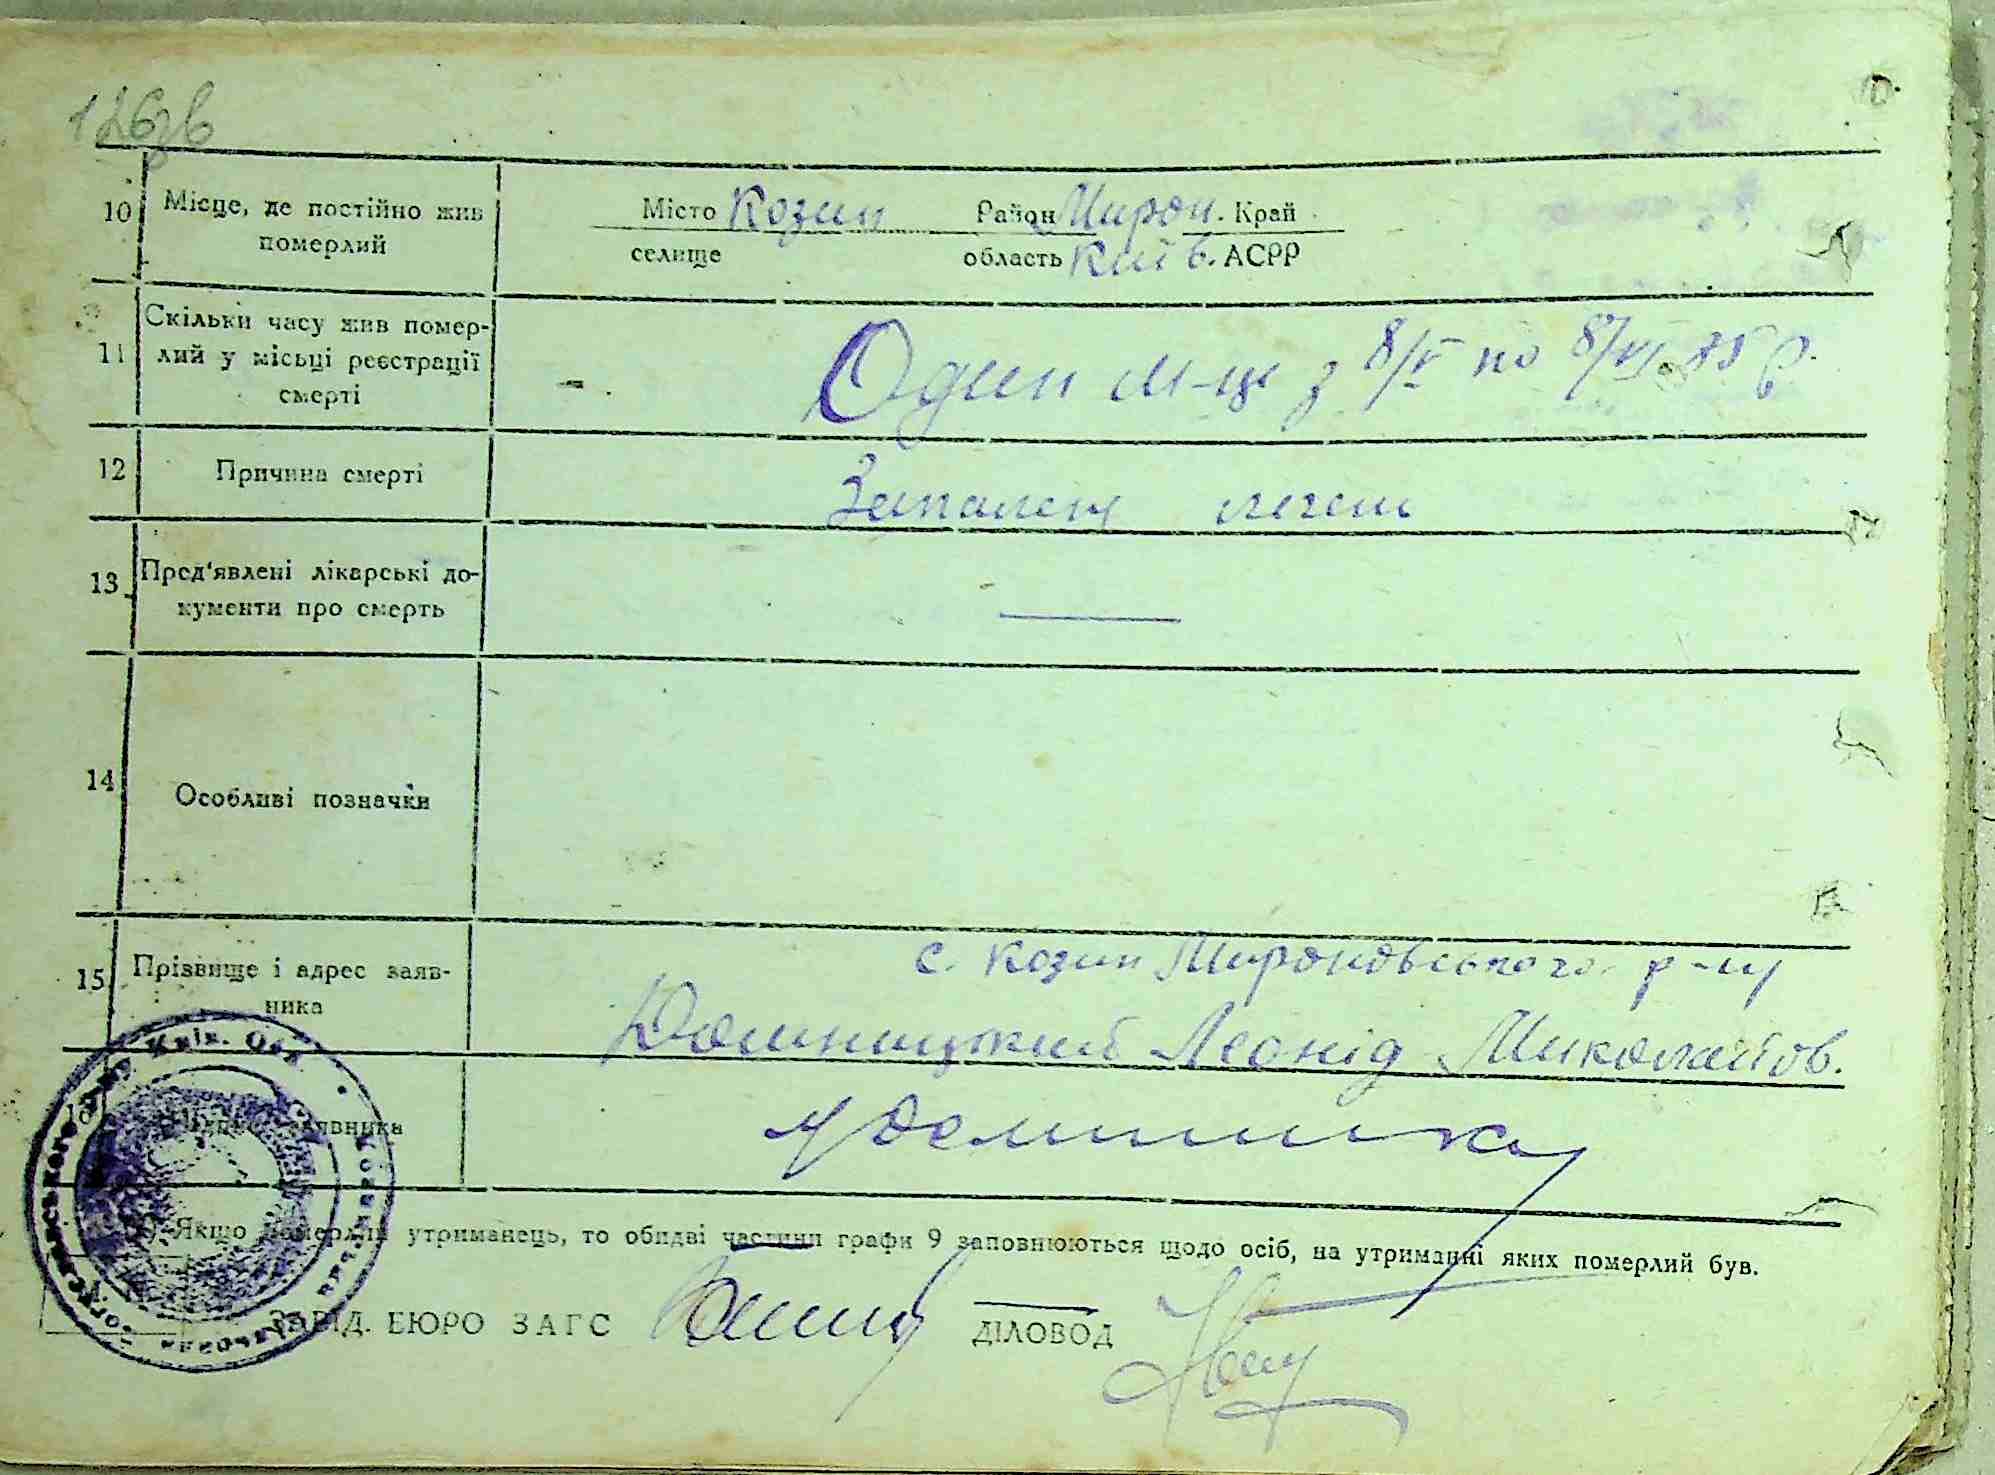 126зв
10 Місце, де постійно жив померлий
Місто Козин Район Мирон. Край
селище область Київ. АСРР
11 Скільки часу жив помер-
лий у місьці реєстрації
смерті
Один м-ць з 8/V по 8/VI
12 Причина смерті
Запаленя легень
13 Пред'явлені лікарські до-
кументи про смерть
—
14 Особливі позначки
15 Прізвище і адрес заяв-
ника
с. Козин Мироновського р-ну
Домницкий Леонід Миколайов.
заявника
Якщо померлий утриманець, то обидві частини графи 9 заповнюються щодо осіб, на утриманні яких померлий був.
ЗАВІД. БЮРО ЗАГС
ДІЛОВОД
Київ. Обл